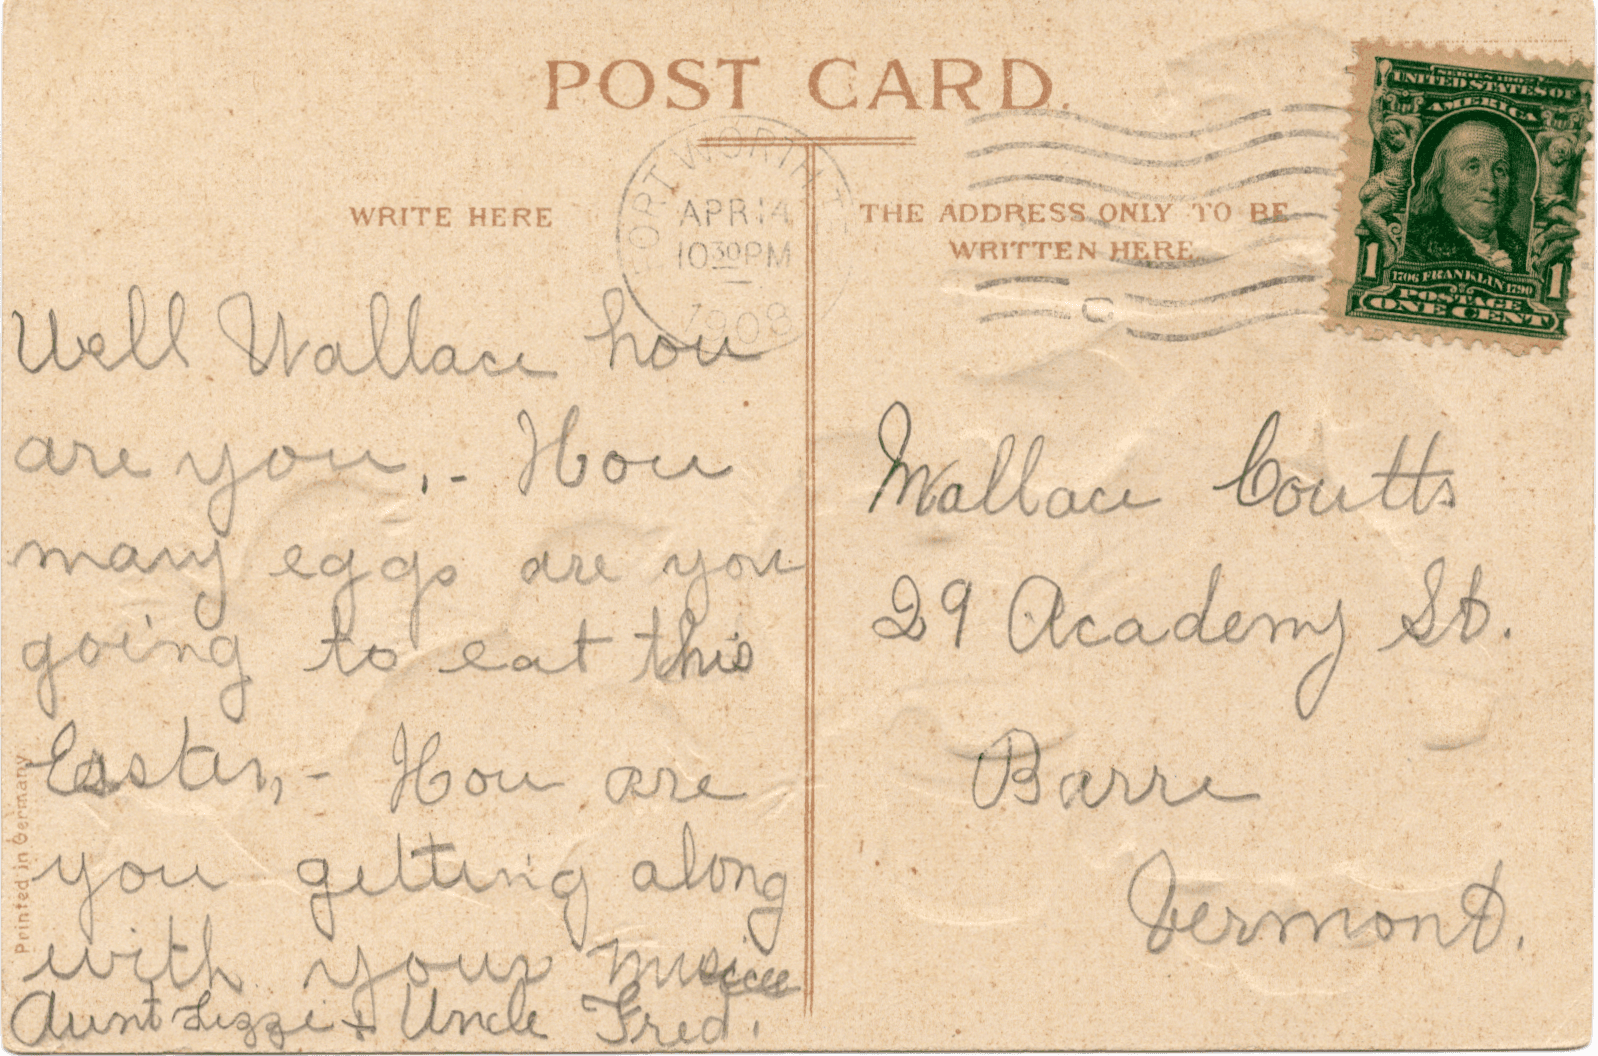 POST CARD.
WRITE HERE
THE ADDRESS ONLY TO BE
WRITTEN HERE.
FORT WORTH
APR 14
10 30 PM
1908
SERIES 1902
UNITED STATES OF
AMERICA
1706 FRANKLIN 1790
1 1
POSTAGE
ONE CENT
Well Wallace how
are you,- How
many eggs are you
going to eat this
Easter,- How are
you getting along
with your music
Aunt Lizzie + Uncle Fred.
Wallace Coutts
29 Academy St.
Barre
Vermont.
Printed in Germany